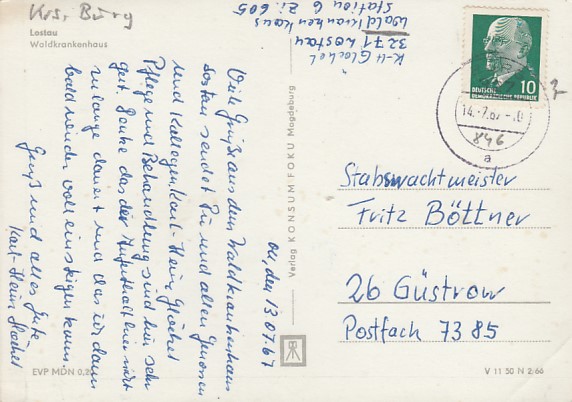 Krs. Burg
Lostau
Waldkrankenhaus
K-H Glöckel
3271 Lostau
Waldkrankenhaus
Station 6 Zi. 605
OU, den 13.07.67
Viele Grüße aus dem Waldkrankenhaus
Lostau sendet Dir und allen Genossen
und Kollegen Karl-Heinz Glöckel
Pflege und Behandlung sind hier sehr
gut. Denke das der Aufenthalt hier nicht
zu lange dauert und das ich dann
bald wieder voll einsteigen kann.
Gruß und alles Gute
Karl-Heinz Glöckel
EVP MDN 0,20
Verlag KONSUM FOKU Magdeburg
10
DEUTSCHE
DEMOKRATISCHE REPUBLIK
14.-7.67
846
a
Stabswachtmeister
Fritz Böttner
26 Güstrow
Postfach 7385
V 11 50 N 2/66